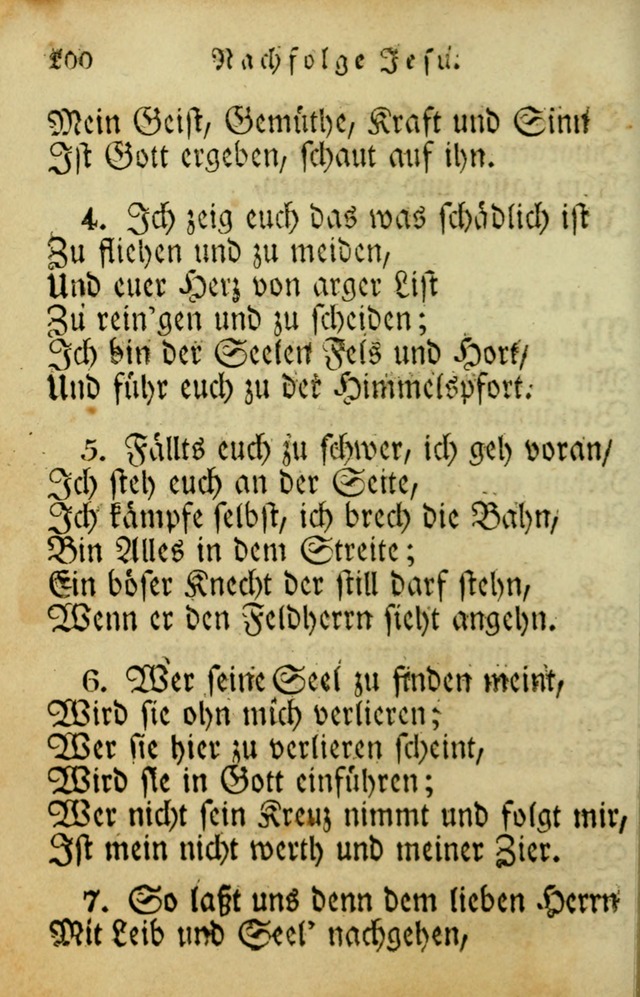 100 Nachfolge Jesu.
Mein Geist, Gemüthe, Kraft und Sinn
Ist Gott ergeben, schaut auf ihn.
4. Ich zeig euch das was schädlich ist
Zu fliehen und zu meiden,
Und euer Herz von arger List
Zu rein'gen und zu scheiden;
Ich bin der Seelen Fels und Hort,
Und führ euch zu der Himmelspfort.
5. Fällts euch zu schwer, ich geh voran,
Ich steh euch an der Seite,
Ich kämpfe selbst, ich brech die Bahn,
Bin Alles in dem Streite;
Ein böser Knecht der still darf stehn,
Wenn er den Feldherrn sieht angehn.
6. Wer seine Seel zu finden meint,
Wird sie ohn mich verlieren;
Wer sie hier zu verlieren scheint,
Wird sie in Gott einführen;
Wer nicht sein Kreuz nimmt und folgt mir,
Ist mein nicht werth und meiner Zier.
7. So laßt uns denn dem lieben Herrn
Mit Leib und Seel' nachgehen,